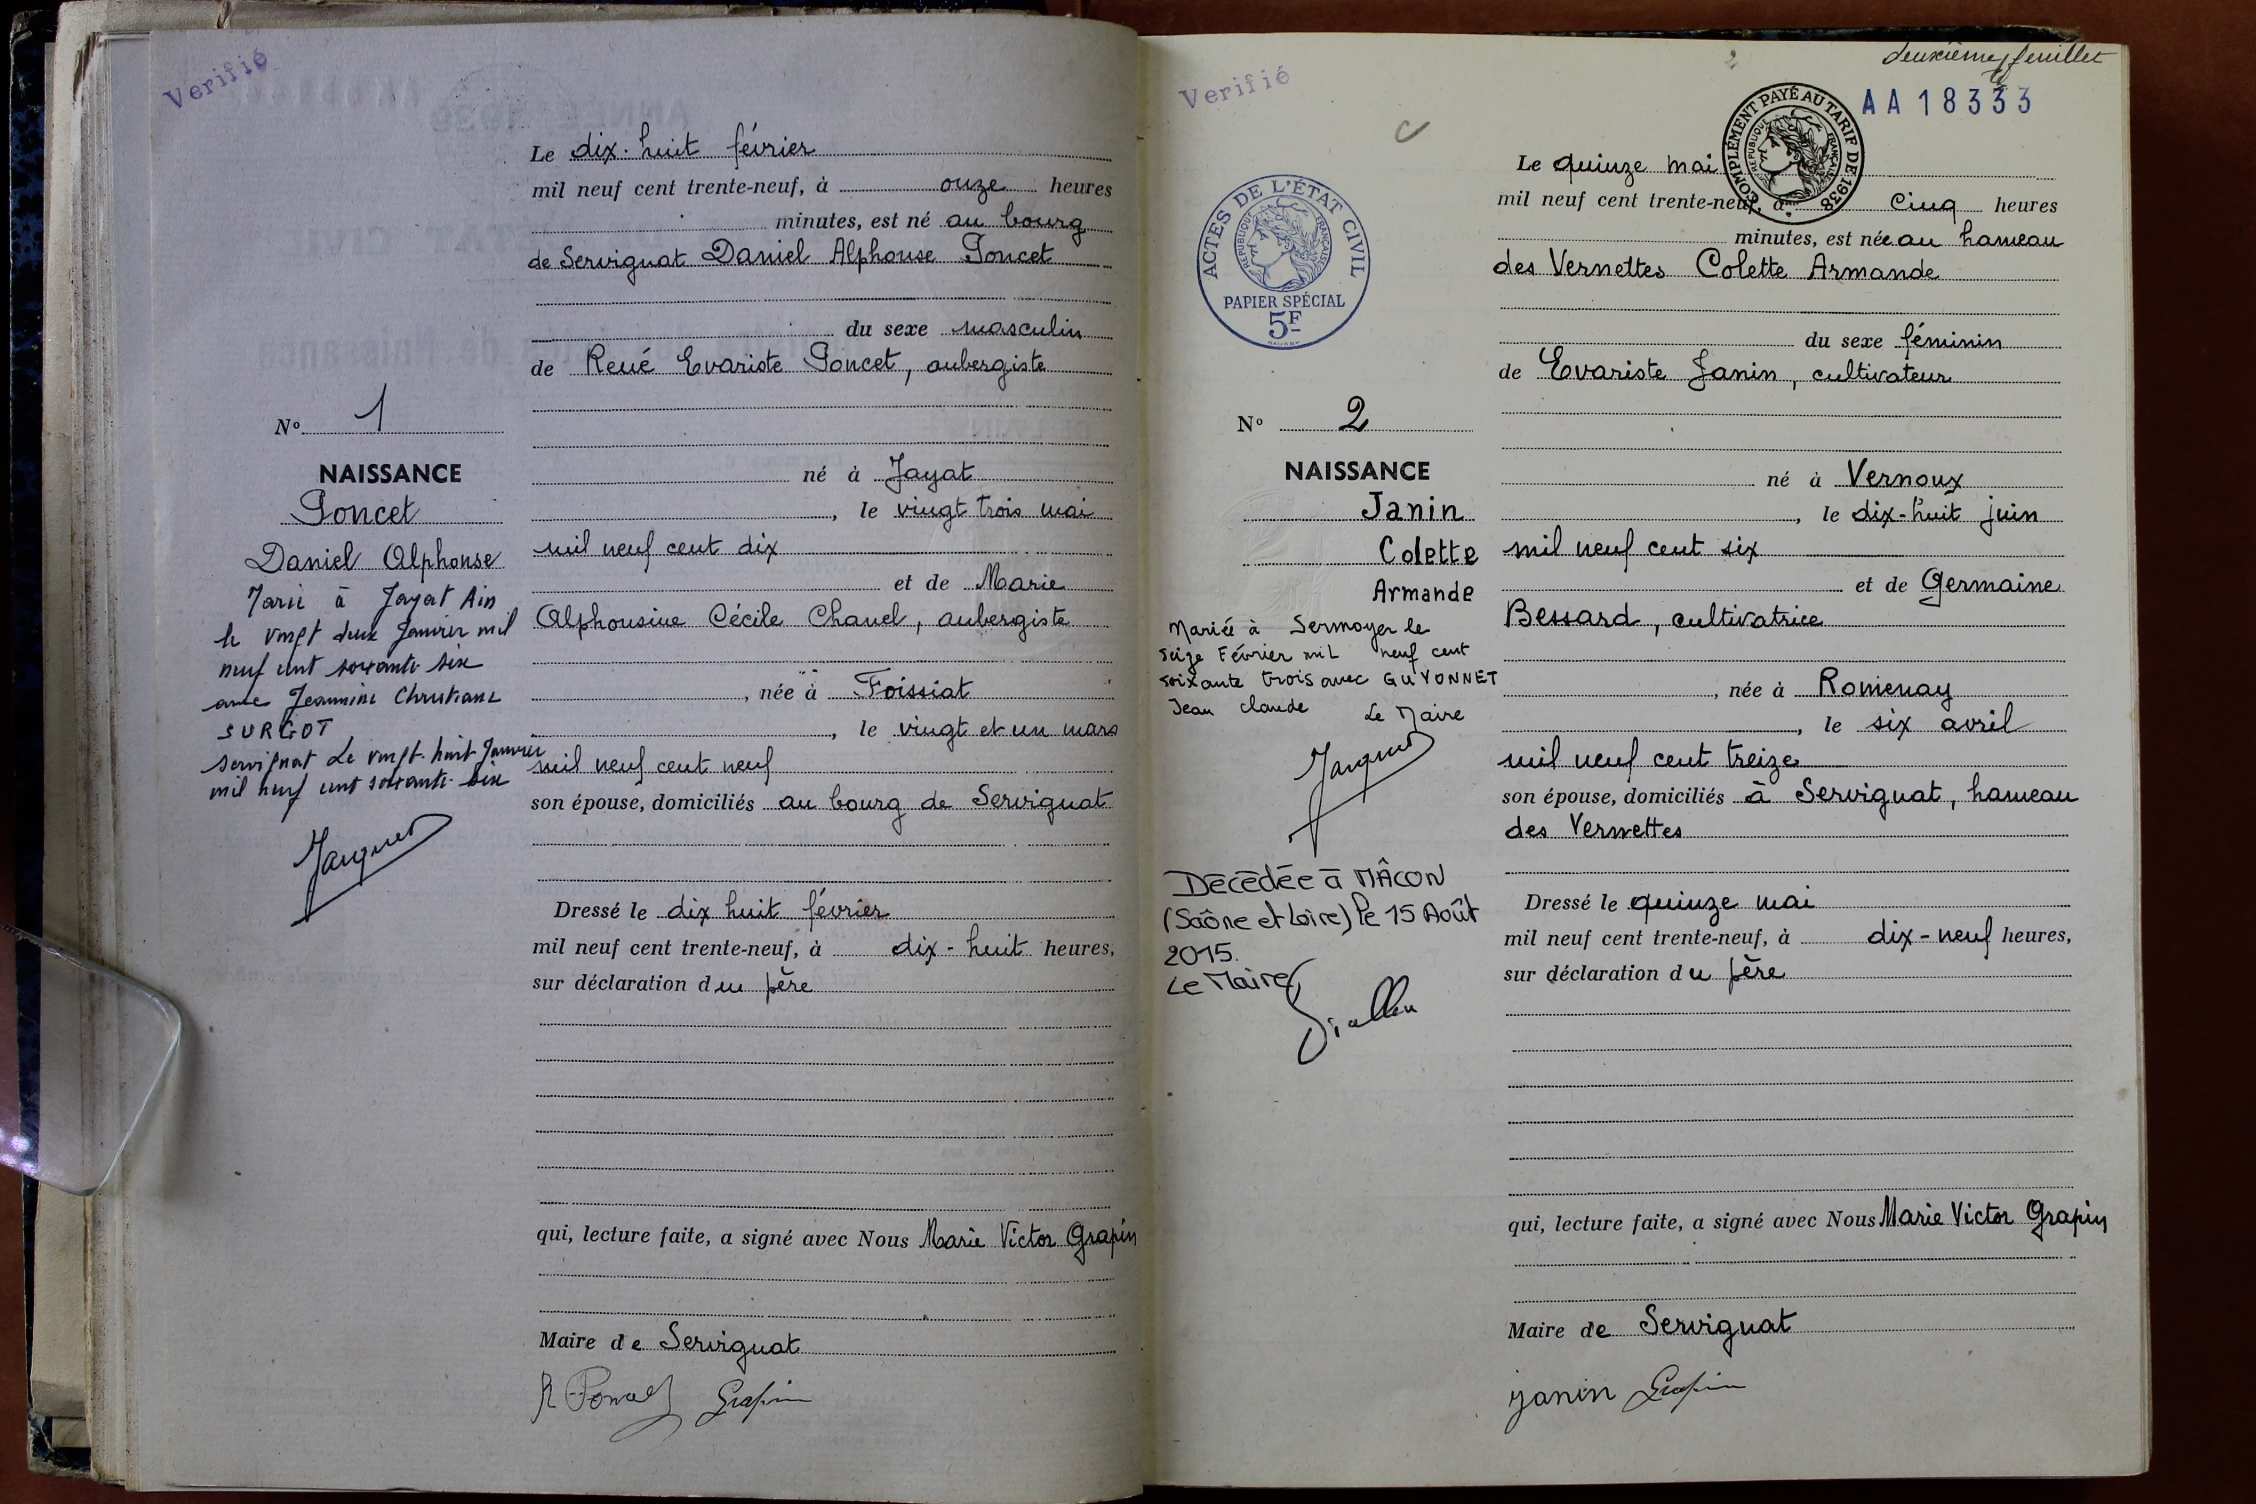 Verifié
Le dix-huit février
mil neuf cent trente-neuf, à onze heures
minutes, est né au bourg
de Servignat Daniel Alphonse Poncet
du sexe masculin
de René Evariste Poncet, aubergiste
né à Jayat
, le vingt trois mai
mil neuf cent dix
et de Marie
Alphonsine Cécile Chanel, aubergiste
, née à Foissiat
, le vingt et un mars
mil neuf cent neuf
son épouse, domiciliés au bourg de Servignat
Dressé le dix huit février
mil neuf cent trente-neuf, à dix-huit heures,
sur déclaration du père
qui, lecture faite, a signé avec Nous Marie Victor Grapin
Maire de Servignat
Grapin
Nº 1
NAISSANCE
Poncet
Daniel Alphonse
Marié à Jayat Ain
le vingt deux Janvier mil
neuf cent soixante six
avec Jeannine Christiane
SURGOT
Servignat Le vingt-huit Janvier
mil neuf cent soixante-six
Verifié
2
deuxième feuillet
AA18333
COMPLÉMENT PAYÉ AU TARIF DE 1938
REPUBLIQUE FRANÇAISE
ACTES DE L'ÉTAT CIVIL
REPUBLIQUE FRANÇAISE
PAPIER SPÉCIAL
5F
Le quinze mai
mil neuf cent trente-neuf, à cinq heures
minutes, est née au hameau
des Vernettes Colette Armande
du sexe féminin
de Evariste Janin, cultivateur
né à Vernoux
, le dix-huit juin
mil neuf cent six
et de Germaine
Bessard, cultivatrice
, née à Romenay
, le six avril
mil neuf cent treize
son épouse, domiciliés à Servignat, hameau
des Vernettes
Dressé le quinze mai
mil neuf cent trente-neuf, à dix-neuf heures,
sur déclaration du père
qui, lecture faite, a signé avec Nous Marie Victor Grapin
Maire de Servignat
janin Grapin
Nº 2
NAISSANCE
Janin
Colette
Armande
Mariée à Sermoyer le
seize Février mil neuf cent
soixante trois avec GUYONNET
Jean claude Le Maire
Décédée à MÂCON
(Saône et Loire) le 15 Août
2015.
Le Maire